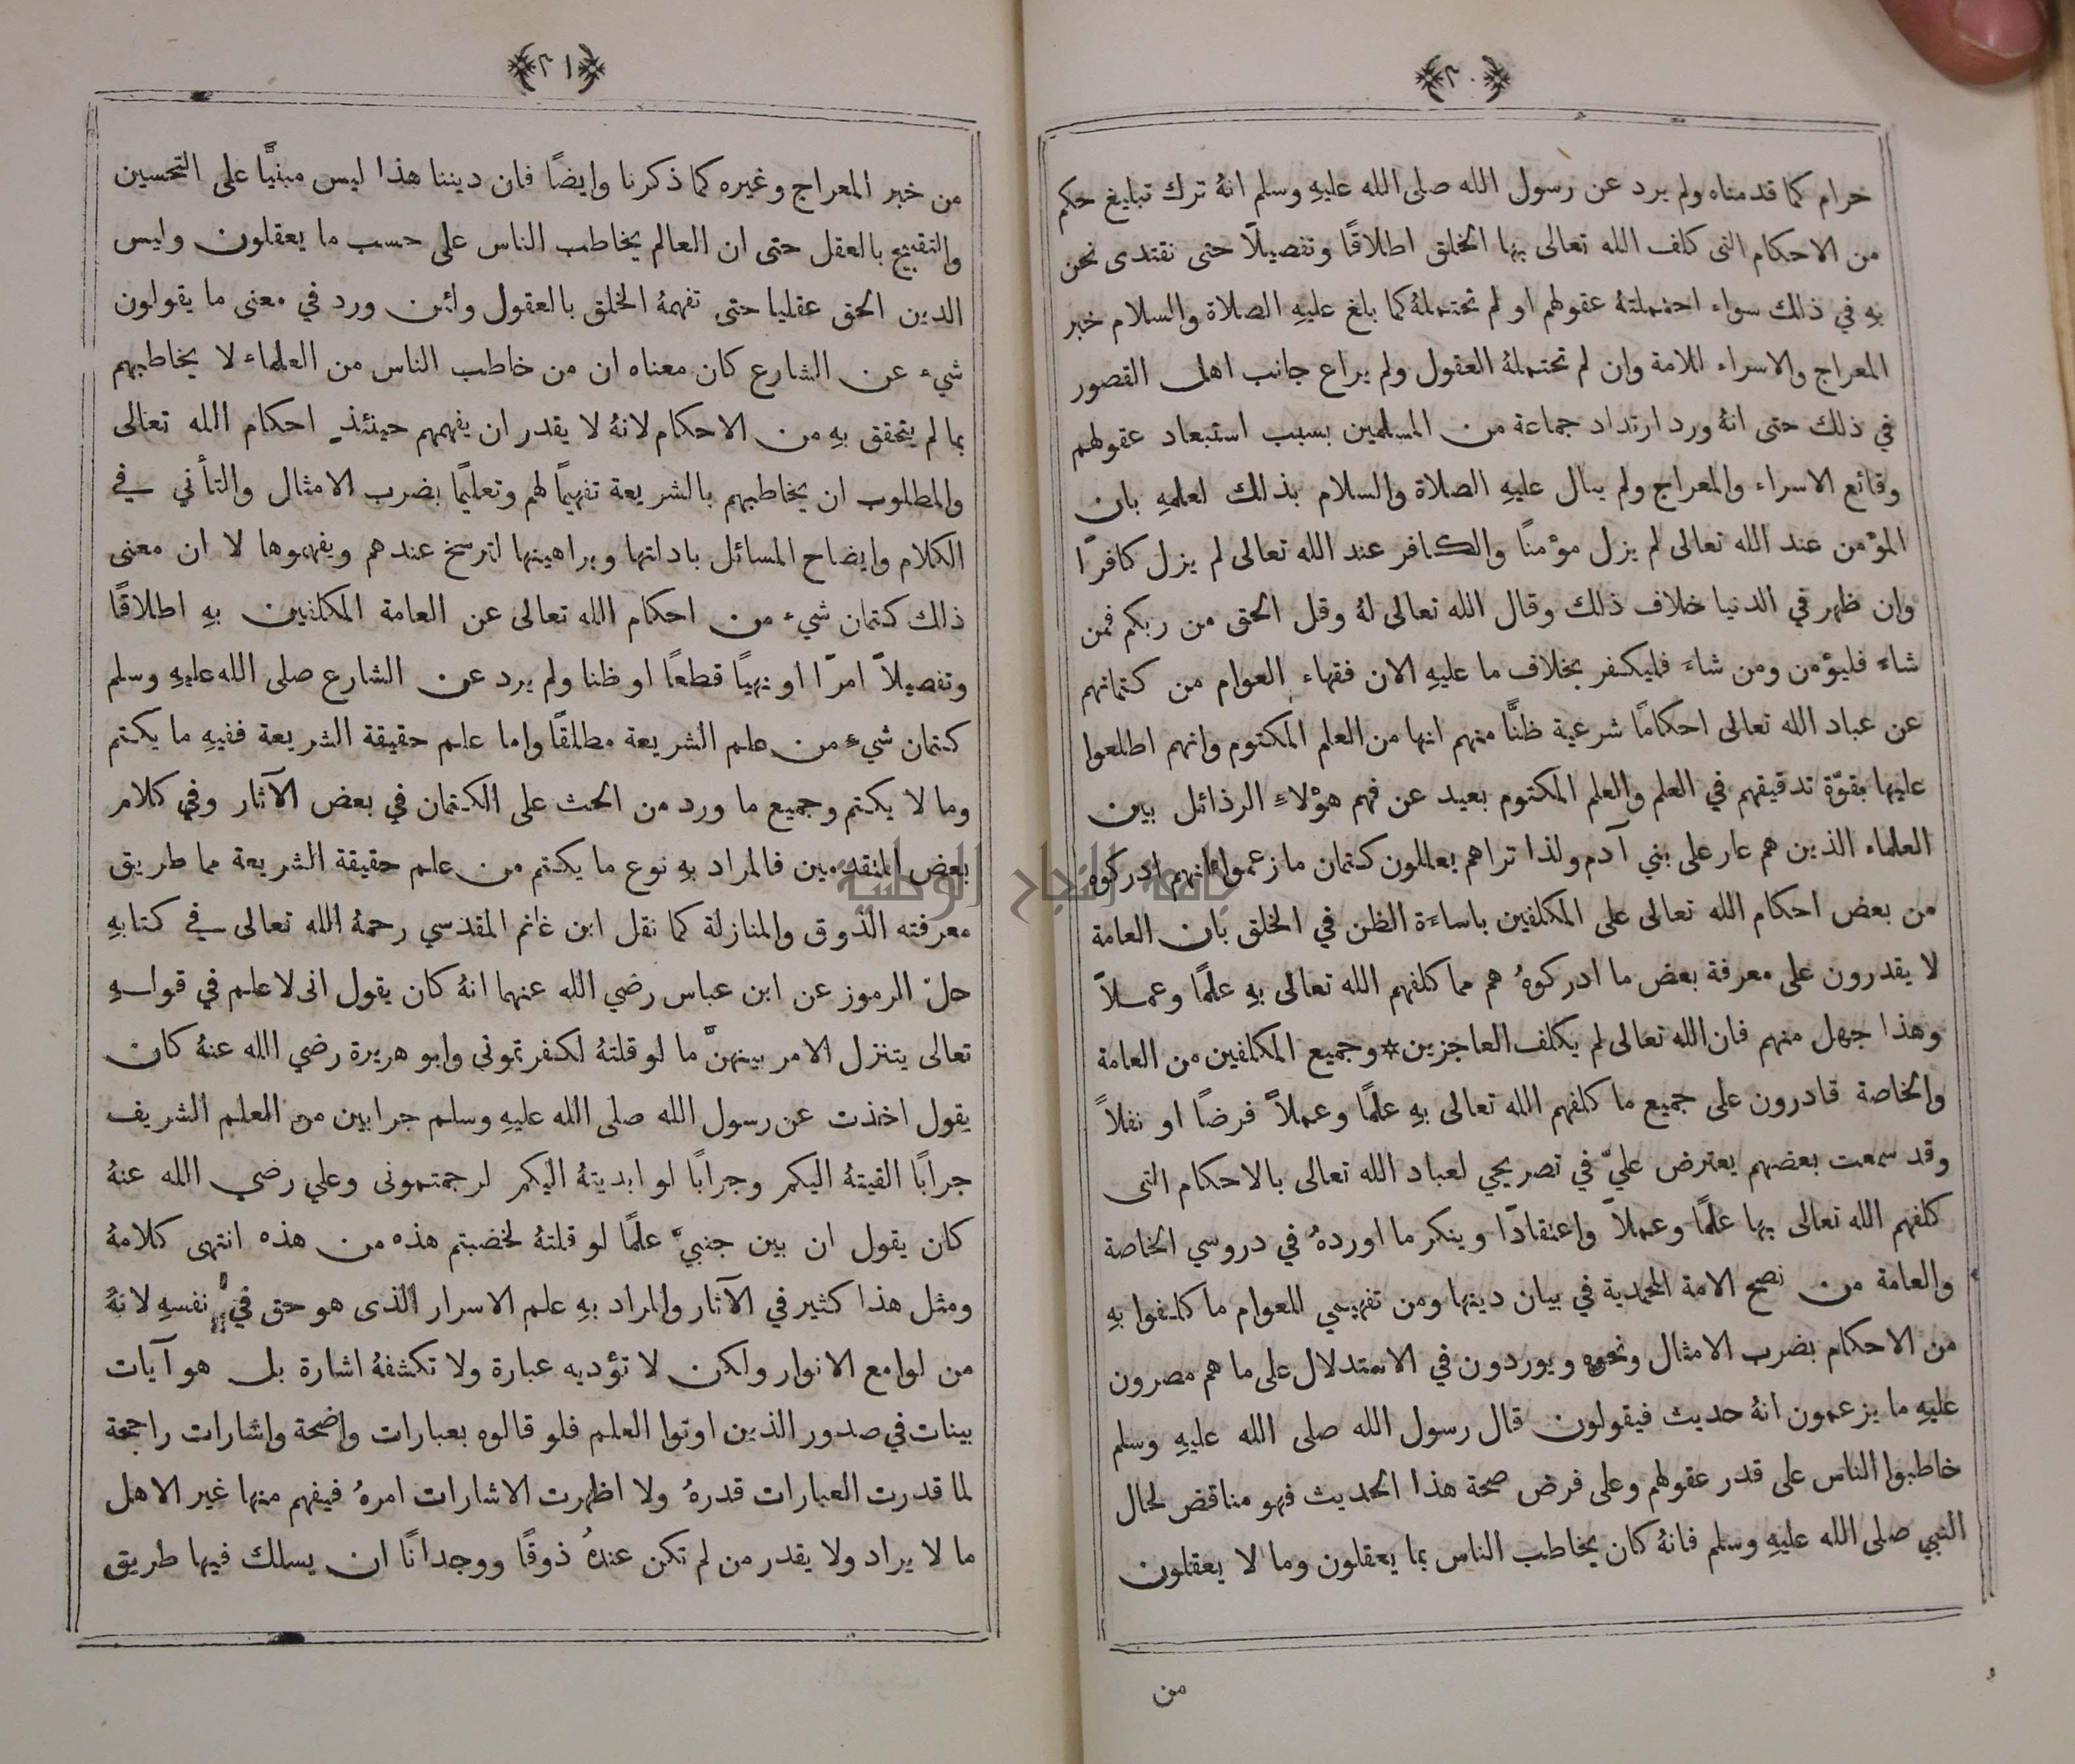 ﴿٢٠﴾
حرام كما قدمناه ولم يرد عن رسول الله صلى الله عليهِ وسلم انهُ ترك تبليغ حكم
من الاحكام التى كلف الله تعالى بها الخلق اطلاقًا وتفصيلًا حتى نقتدى نحن
بهِ في ذلك سواء احتملتهُ عقولهم او لم تحتملهُ كما بلغ عليهِ الصلاة والسلام خبر
المعراج والاسراء للامة وان لم تحتملهُ العقول ولم يراع جانب اهل القصور
في ذلك حتى انهُ ورد ارتداد جماعة من المسلمين بسبب استبعاد عقولهم
وقائع الاسراء والمعراج ولم يبال عليهِ الصلاة والسلام بذلك لعلمهِ بان
المؤمن عند الله تعالى لم يزل مؤمنًا والكافر عند الله تعالى لم يزل كافرًا
وان ظهر في الدنيا خلاف ذلك وقال الله تعالى لهُ وقل الحق من ربكم فمن
شاء فليؤمن ومن شاء فليكفر بخلاف ما عليهِ الان فقهاء العوام من كتمانهم
عن عباد الله تعالى احكامًا شرعية ظنًّا منهم انها من العلم المكتوم وانهم اطلعوا
عليها بقوّة تدقيقهم في العلم والعلم المكتوم بعيد عن فهم هؤلاءِ الرذائل بين
العلماء الذين هم عار على بني آدم ولذا تراهم يعللون كتمان ما زعموا انهم ادركوه
من بعض احكام الله تعالى على المكلفين باساءة الظن في الخلق بان العامة
لا يقدرون على معرفة بعض ما ادركوهُ هم مما كلفهم الله تعالى بهِ علمًا وعملاً
وهذا جهل منهم فان الله تعالى لم يكلف العاجزين * وجميع المكلفين من العامة
والخاصة قادرون على جميع ما كلفهم الله تعالى بهِ علمًا وعملاً فرضًا او نفلاً
وقد سمعت بعضهم يعترض عليّ في تصريحي لعباد الله تعالى بالاحكام التى
كلفهم الله تعالى بها علمًا وعملاً واعتقادًا وينكر ما اوردهُ في دروسي الخاصة
والعامة من نصح الامة المحمدية في بيان دينها ومن تفهيمي للعوام ما كلفوا بهِ
من الاحكام بضرب الامثال ونحوه ويوردون في الاستدلال على ما هم مصرون
عليهِ ما يزعمون انهُ حديث فيقولون قال رسول الله صلى الله عليهِ وسلم
خاطبوا الناس على قدر عقولهم وعلى فرض صحة هذا الحديث فهو مناقض لحال
النبي صلى الله عليهِ وسلم فانهُ كان يخاطب الناس بما يعقلون وما لا يعقلون
من
﴿٢١﴾
من خبر المعراج وغيره كما ذكرنا وايضًا فان ديننا هذا ليس مبنيًّا على التحسين
والتقبيح بالعقل حتى ان العالم يخاطب الناس على حسب ما يعقلون وليس
الدين الحق عقليا حتى تفهمهُ الخلق بالعقول ولئن ورد في معنى ما يقولون
شيء عن الشارع كان معناه ان من خاطب الناس من العلماء لا يخاطبهم
بما لم يتحقق بهِ من الاحكام لانهُ لا يقدر ان يفهمهم حينئذ احكام الله تعالى
والمطلوب ان يخاطبهم بالشريعة تفهيمًا لهم وتعليمًا بضرب الامثال والتأني في
الكلام وايضاح المسائل بادلتها وبراهينها لترسخ عندهم ويفهموها لا ان معنى
ذلك كتمان شيء من احكام الله تعالى عن العامة المكلفين بهِ اطلاقًا
وتفصيلاً امرًا او نهيًا قطعًا او ظنا ولم يرد عن الشارع صلى الله عليهِ وسلم
كتمان شيءٍ من علم الشريعة مطلقًا واما علم حقيقة الشريعة ففيهِ ما يكتم
وما لا يكتم وجميع ما ورد من الحث على الكتمان في بعض الآثار وفي كلام
بعض المتقدمين فالمراد بهِ نوع ما يكتم من علم حقيقة الشريعة مما طريق
معرفته الذوق والمنازلة كما نقل ابن غانم المقدسي رحمهُ الله تعالى في كتابهِ
حلّ الرموز عن ابن عباس رضي الله عنهما انهُ كان يقول انى لاعلم في قولهِ
تعالى يتنزل الامر بينهنّ ما لو قلتهُ لكفرتمونى وابو هريرة رضي الله عنهُ كان
يقول اخذت عن رسول الله صلى الله عليهِ وسلم جرابين من العلم الشريف
جرابًا القيتهُ اليكم وجرابًا لو ابديتهُ اليكم لرجمتمونى وعلي رضي الله عنهُ
كان يقول ان بين جنبيّ علمًا لو قلتهُ لخضبتم هذه من هذه انتهى كلامهُ
ومثل هذا كثير في الآثار والمراد بهِ علم الاسرار الذى هو حق في نفسهِ لانهُ
من لوامع الانوار ولكن لا تؤديه عبارة ولا تكشفهُ اشارة بل هو آيات
بينات في صدور الذين اوتوا العلم فلو قالوه بعبارات واضحة واشارات راجحة
لما قدرت العبارات قدرهُ ولا اظهرت الاشارات امرهُ فيفهم منها غير الاهل
ما لا يراد ولا يقدر من لم تكن عندهُ ذوقًا ووجدانًا ان يسلك فيها طريق
جامعة النجاح الوطنية